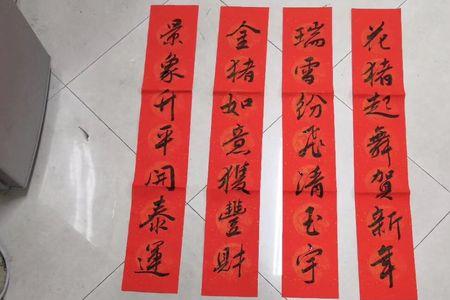 花猪起舞賀新年
瑞雪纷飛清玉宇
金猪如意獲豐財
景象升平開泰運